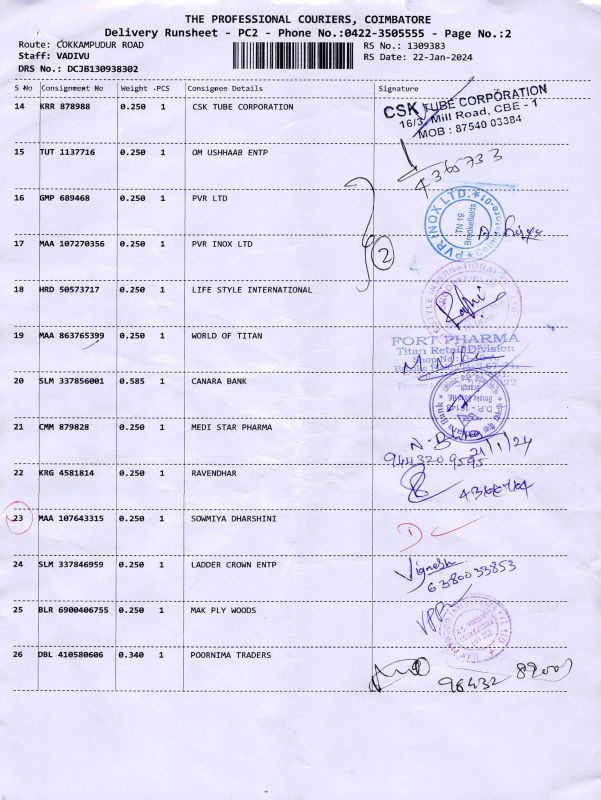 THE PROFESSIONAL COURIERS, COIMBATORE
Delivery Runsheet - PC2 - Phone No.:0422-3505555 - Page No.:2
Route: COKKAMPUDUR ROAD
Staff: VADIVU
DRS No.: DCJB130938302
RS No.: 1309383
RS Date: 22-Jan-2024
S No Consignment No Weight .PCS Consignee Details Signature
14 KRR 878988 0.250 1 CSK TUBE CORPORATION
CSK TUBE CORPORATION
16/3, Mill Road, CBE - 1
MOB : 87540 03384
15 TUT 1137716 0.250 1 OM USHHAAB ENTP
4365733
16 GMP 689468 0.250 1 PVR LTD
PVR INOX LTD.
TN 19
Brookefields
17 MAA 107270356 0.250 1 PVR INOX LTD
2
18 HRD 50573717 0.250 1 LIFE STYLE INTERNATIONAL
19 MAA 863765399 0.250 1 WORLD OF TITAN
FORT PHARMA
Titan Retail Division
20 SLM 337856001 0.585 1 CANARA BANK
21 CMM 879828 0.250 1 MEDI STAR PHARMA
21/1/24
944320 9595
22 KRG 4581814 0.250 1 RAVENDHAR
23 MAA 107643315 0.250 1 SOWMIYA DHARSHINI
24 SLM 337846959 0.250 1 LADDER CROWN ENTP
Vignesh
6380033853
25 BLR 6900406755 0.250 1 MAK PLY WOODS
26 DBL 410580606 0.340 1 POORNIMA TRADERS